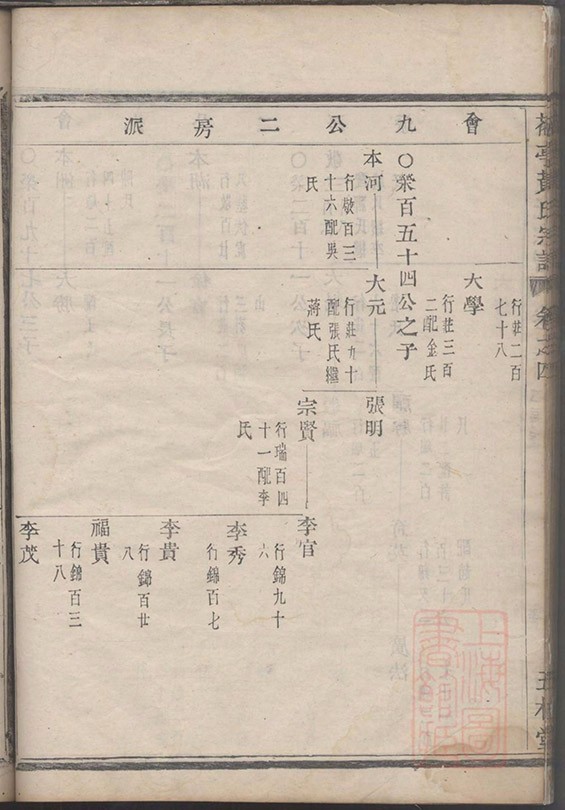 黃氏宗譜 卷之四
會九公二房派
行莊二百
七十八
大學
行莊三百
二配金氏
〇榮百五十四公之子
本河
行敬百三
十六配吳
氏
大元
行莊九十
配張氏繼
蔣氏
張明
宗賢
行瑞百四
十一配李
氏
李官
行錦九十
六
李秀
行錦百七
李貴
行錦百廿
八
福貴
行錦百三
十八
李茂